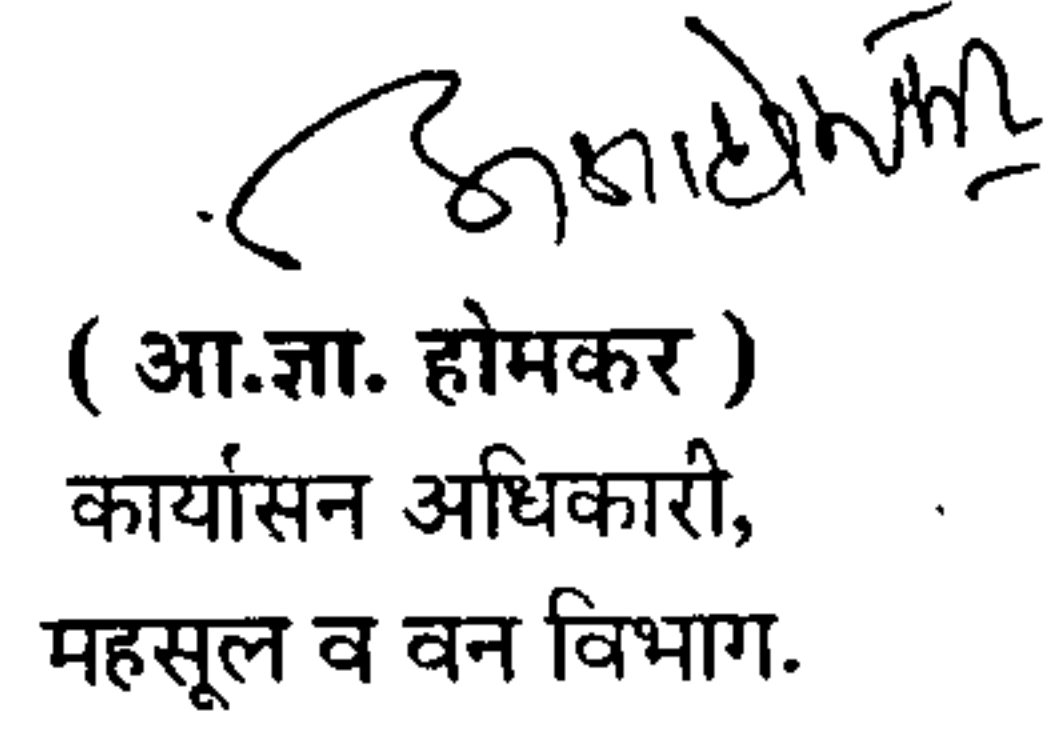 ( आ.ज्ञा. होमकर )
कार्यासन अधिकारी,
महसूल व वन विभाग.